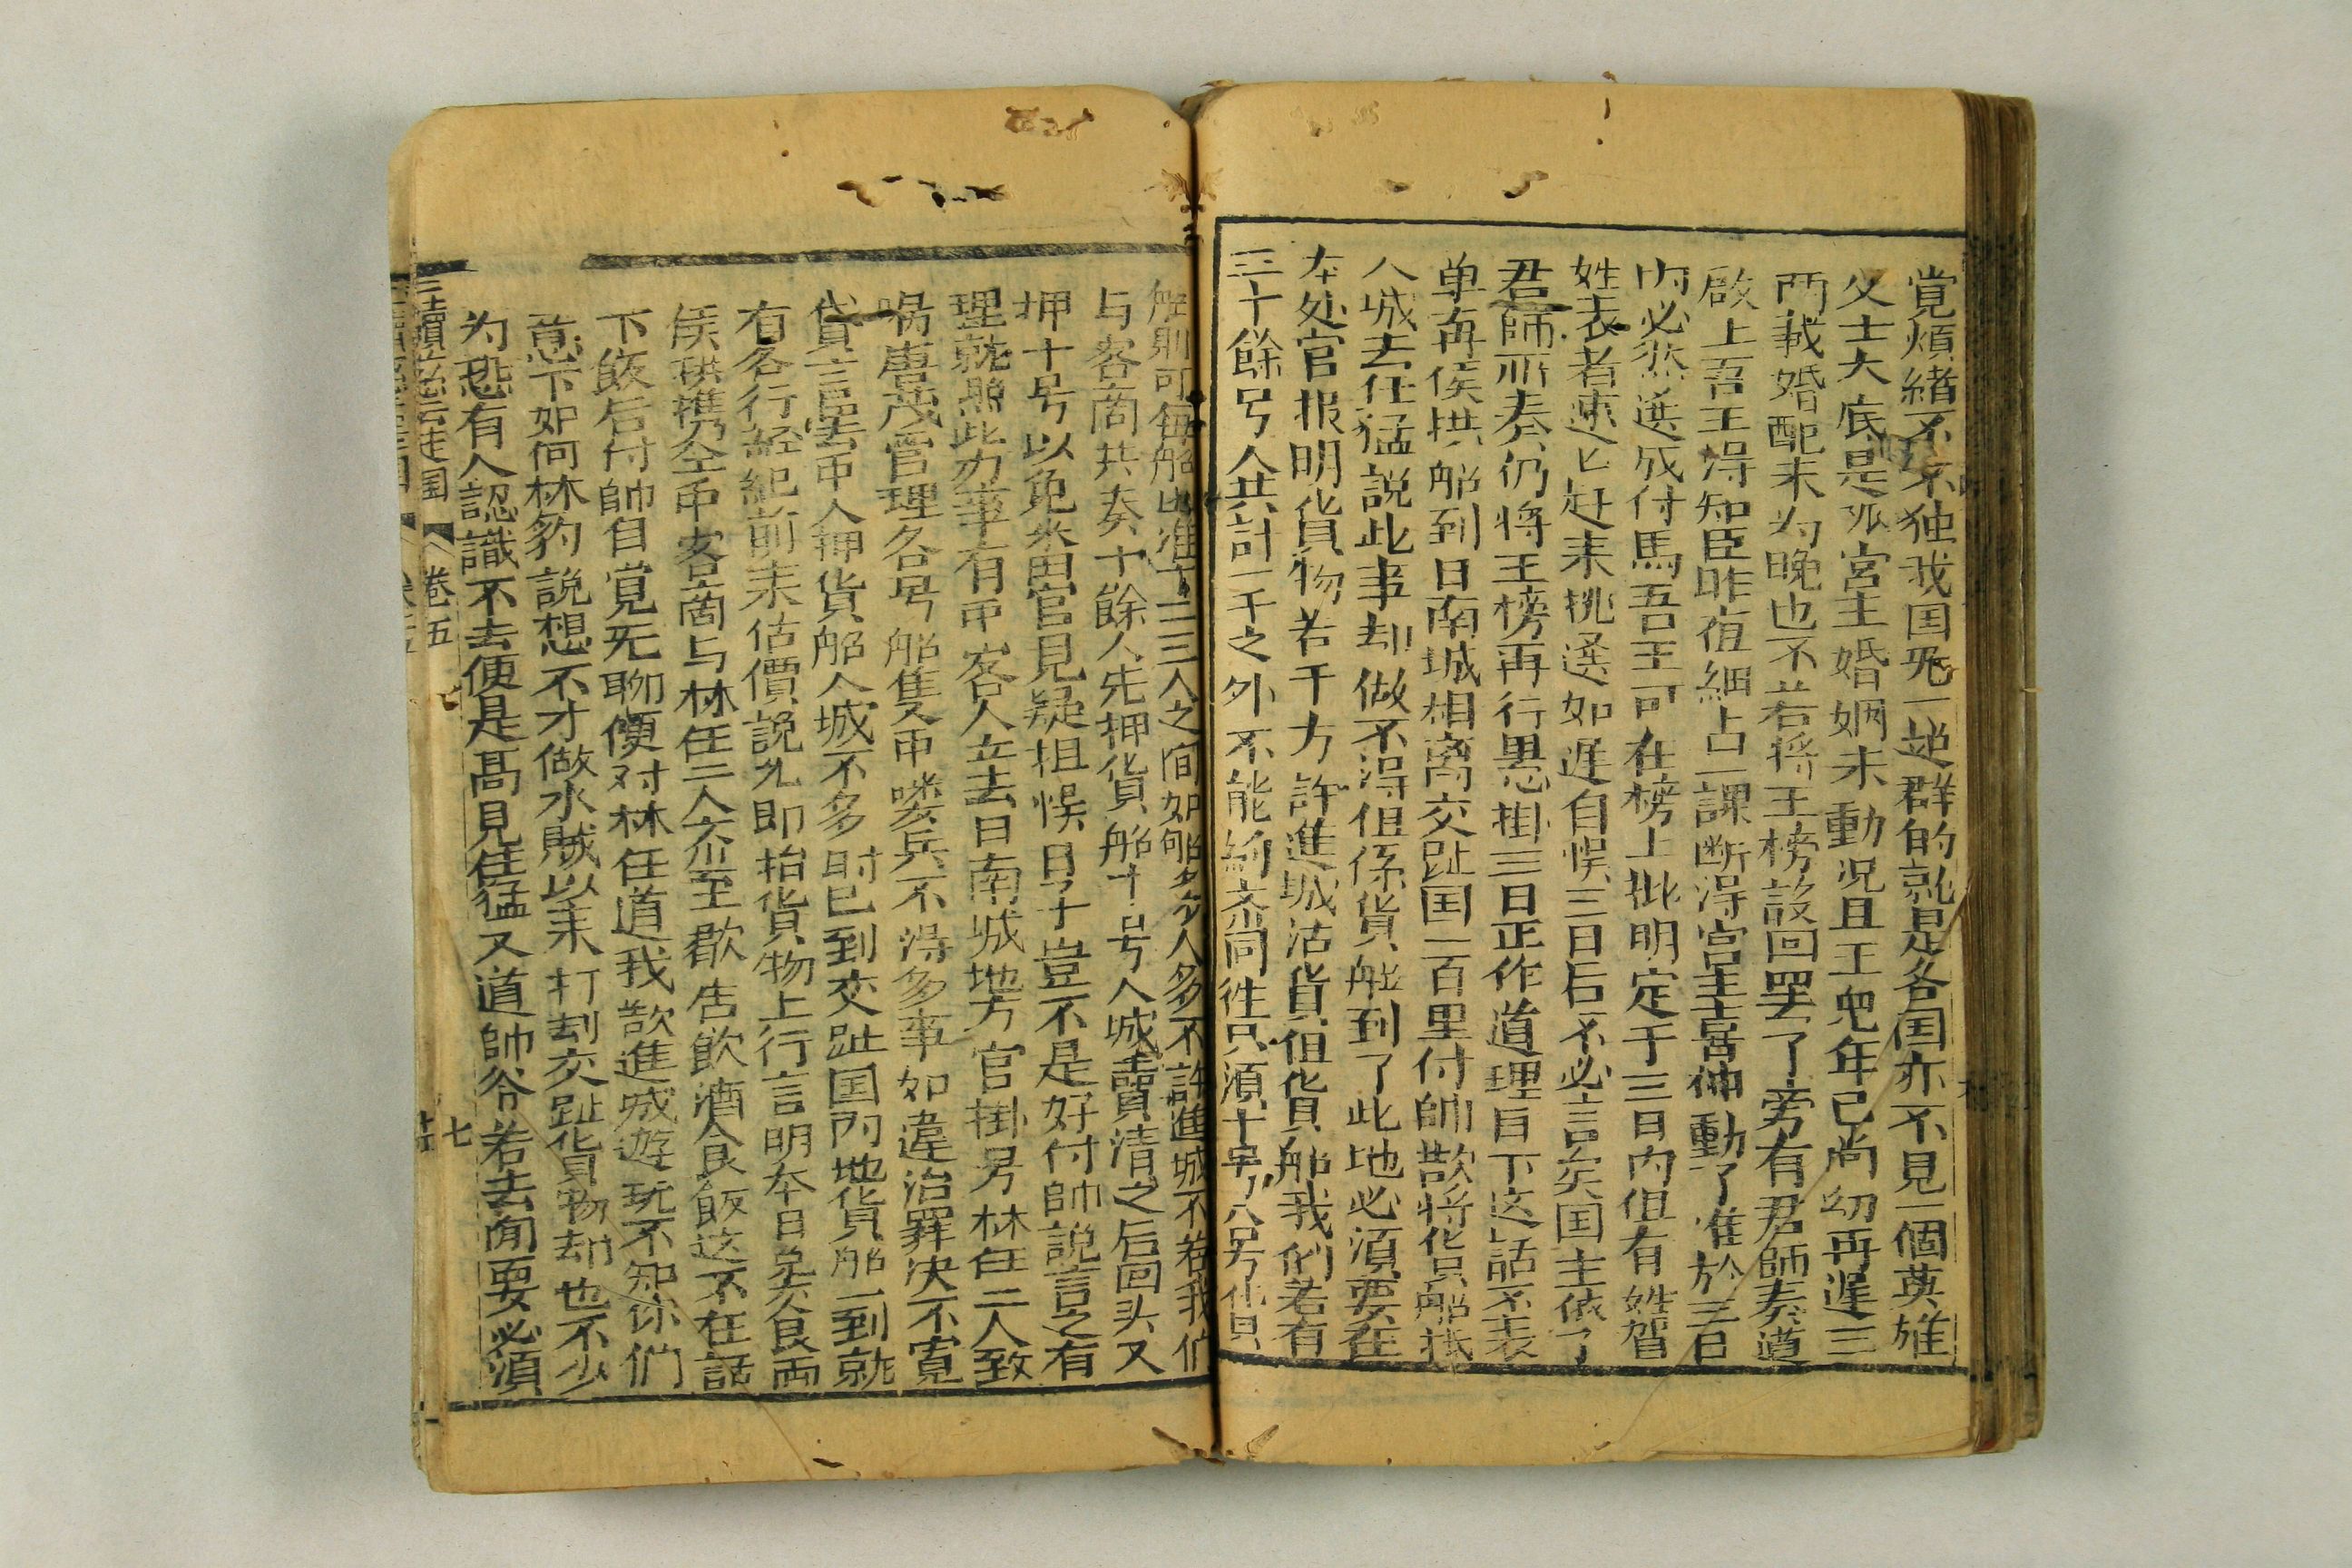 覚煩緒不宗独我国死一超群的就是各国亦不見一個英雄
父士大底是派宮主婚姻未動况且王児年已尚幼再遅三
両載婚配未为晚也不若将王榜設回罢了旁有君師奏道
啟上吾王得知臣昨夜細占一課断得宮主喜伸動了准於三日
内必然選成付馬吾王可在榜上批明定于三日内但有姓賀
姓表者速匕赶耒挑選如遅自悞三日后不必言矣国主依了
君師所奏仍将王榜再行悬掛三日正作道理目下这話不表
单再侯拱船到日南城相离交趾国一百里付帥歆将貨船抵
入城去任猛説此事却做不得但係貨船到了此地必須要在
本処官报明貨物若干方許進城沽貨但貨船我们若有
三十餘号人共計一千之外不能約齐同徃只須十号八号貨
船則可每船准下二三人之间如船多人多不許進城不若我们
与客商共奏十餘人先押貨船十号入城賣清之后回头又
押十号以免来由官見疑担悞日子豈不是好付帥説言之有
理就照此办事有甲客人立去日南城地方官掛号林任二人致
嘱唐茂官理各号船隻甲喽兵不得多事如違治罪决不寬
貸言罢甲人押貨船入城不多时已到交趾国内地貨船一到就
有各行経紀前耒估價説允即抬貨物上行言明本日兑食両
侯拱携全甲客商与林任二人齐至歇店飲酒食飯这不在話
下飯后付帥自覚无聊便对林任道我歆進城遊玩不知你们
意下如何林豹説想不才做水賊以耒打刼交趾貨物却也不少
为恐有人認識不去便是高見任猛又道帥爷若去閒耍必須
卷五
七